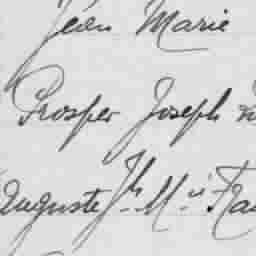 Jean Marie
Prosper Joseph
Auguste Jh M ii